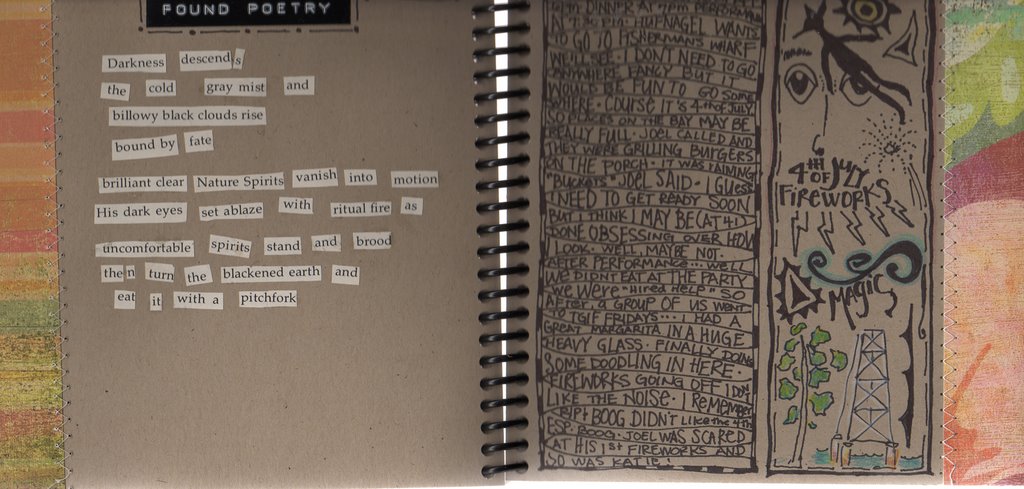 FOUND POETRY
Darkness descends
the cold gray mist and
billowy black clouds rise
bound by fate
brilliant clear Nature Spirits vanish into motion
His dark eyes set ablaze with ritual fire as
uncomfortable spirits stand and brood
then turn the blackened earth and
eat it with a pitchfork
DINNER AT 7PM PERFORM
HUFNAGEL WANTS
TO GO TO FISHERMAN'S WHARF
WE'LL SEE. I DON'T NEED TO GO
ANYWHERE FANCY BUT IT
WOULD BE FUN TO GO SOME
WHERE. COURSE IT'S 4TH OF JULY
SO PLACES ON THE BAY MAY BE
REALLY FULL. JOEL CALLED AND
THEY WERE GRILLING BURGERS
ON THE PORCH. IT WAS RAINING
"BUCKETS" JOEL SAID. I GUESS
I NEED TO GET READY SOON
BUT I THINK I MAY BE (AT 41)
DONE OBSESSING OVER HOW
I LOOK. WELL, MAYBE NOT.
AFTER PERFORMANCE: WELL
WE DIDNT EAT AT THE PARTY
WE WERE "HIRED HELP" SO
AFTER A GROUP OF US WENT
TO TGIF FRIDAYS... I HAD A
GREAT MARGARITA IN A HUGE
HEAVY GLASS. FINALLY DOING
SOME DOODLING IN HERE.
FIREWORKS GOING OFF I DON'T
LIKE THE NOISE. I REMEMBER
BOOG DIDN'T LIKE THE 4TH
ESP. BOOG. JOEL WAS SCARED
AT HIS 1ST FIREWORKS AND
SO WAS KATIE!
4TH
OF JULY
FIREWORKS
MAGIC